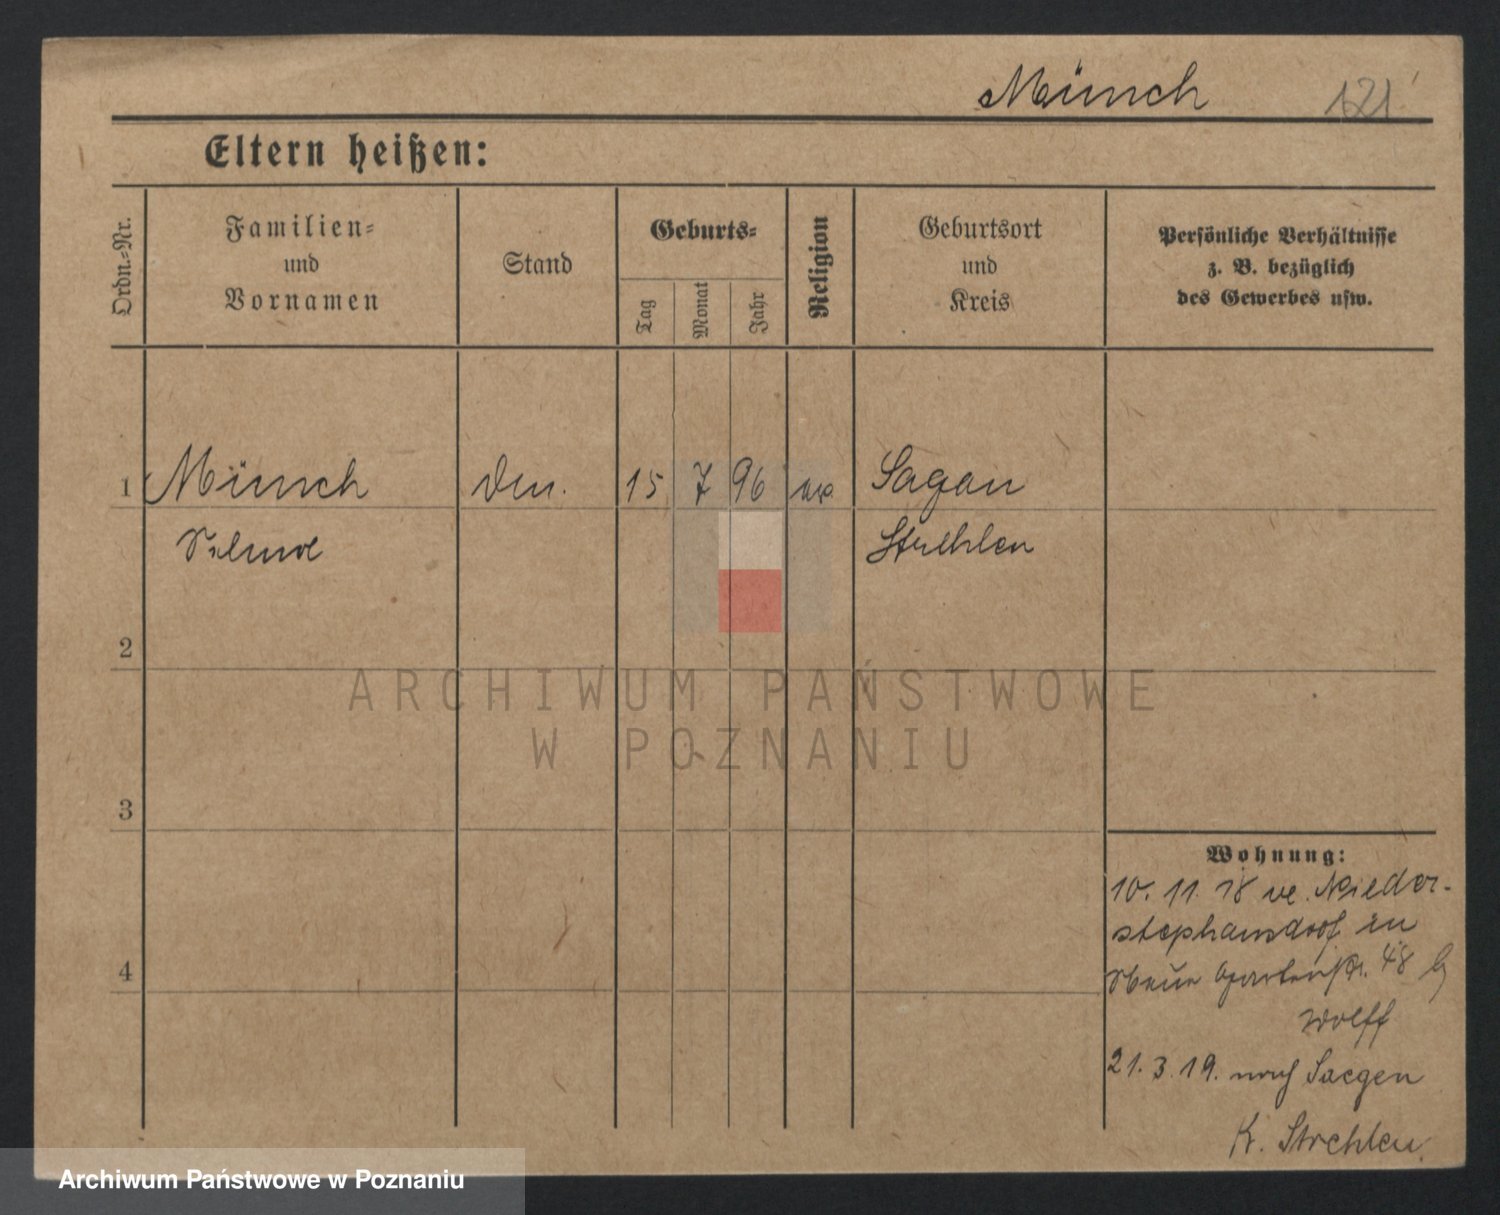 Münch 121
Eltern heißen:
Ordn.-Nr.
Familien-
und
Vornamen
Stand
Geburts-
Tag
Monat
Jahr
Religion
Geburtsort
und
Kreis
Persönliche Verhältnisse
z. B. bezüglich
des Gewerbes usw.
1 Münch 15 7 96 Sagan
Selma Strehlen
2
ARCHIWUM PAŃSTWOWE
W POZNANIU
3
4
Wohnung:
10. 11. 18 Nieder-
stephansdorf in
Neue Gartenstr. 48 b
Wolff
21. 3. 19. nach Saegen
K. Strehlen.
Archiwum Państwowe w Poznaniu